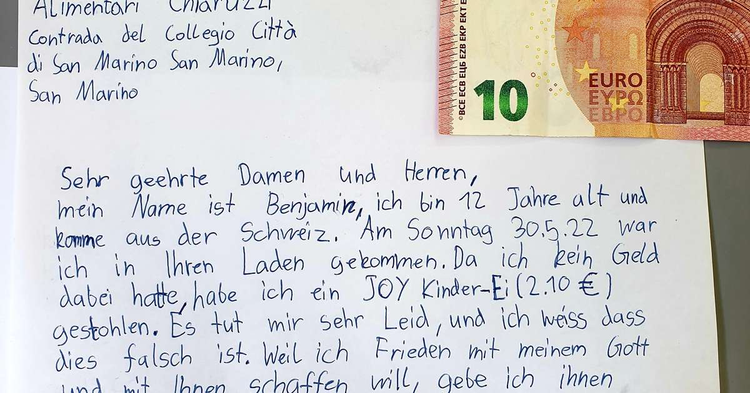 Alimentari Chiaruzzi
Contrada del Collegio Città
di San Marino San Marino,
San Marino
BCE ECB ЕЦБ EZB EKP EKT
10
EURO
ΕΥΡΩ
ЕВРО
Sehr geehrte Damen und Herren,
mein Name ist Benjamin, ich bin 12 Jahre alt und
komme aus der Schweiz. Am Sonntag 30.5.22 war
ich in Ihren Laden gekommen. Da ich kein Geld
dabei hatte, habe ich ein JOY Kinder-Ei (2.10 €)
gestohlen. Es tut mir sehr Leid, und ich weiss dass
dies falsch ist. Weil ich Frieden mit meinem Gott
und mit Ihnen schaffen will, gebe ich ihnen